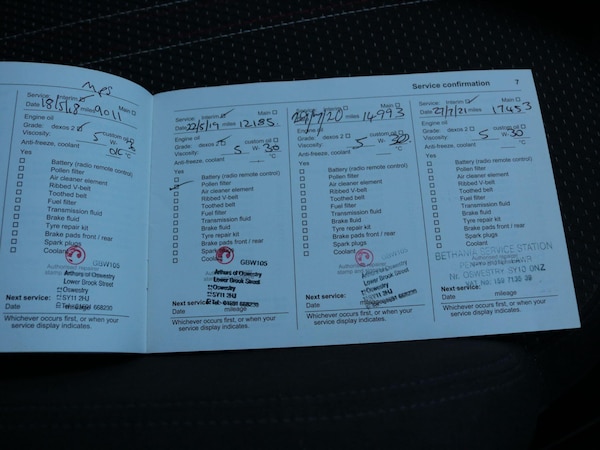 Service confirmation 7
Service: Interim Main
Date 18/5/18 miles 9011
Engine oil
Grade: dexos 2 custom oil
Viscosity: 5 W-
Anti-freeze, coolant °C
Yes
Battery (radio remote control)
Pollen filter
Air cleaner element
Ribbed V-belt
Toothed belt
Fuel filter
Transmission fluid
Brake fluid
Tyre repair kit
Brake pads front / rear
Spark plugs
Coolant
GBW105
Authorised repairer
Arthurs of Oswestry
Lower Brook Street
Oswestry
SY11 2HJ
Next service:
Date mileage
Whichever occurs first, or when your
service display indicates.
Service: Interim Main
Date 22/5/19 miles 12185
Engine oil
Grade: dexos 2 custom oil
Viscosity: 5 W- 30
Anti-freeze, coolant °C
Yes
Battery (radio remote control)
Pollen filter
Air cleaner element
Ribbed V-belt
Toothed belt
Fuel filter
Transmission fluid
Brake fluid
Tyre repair kit
Brake pads front / rear
Spark plugs
Coolant
GBW105
Arthurs of Oswestry
Lower Brook Street
Oswestry
SY11 2HJ
Tel: 01691 668235
Next service:
Date mileage
Whichever occurs first, or when your
service display indicates.
Service: Interim Main
Date miles 14993
Engine oil
Grade: dexos 2 custom oil
Viscosity: 5 W-
Anti-freeze, coolant °C
Yes
Battery (radio remote control)
Pollen filter
Air cleaner element
Ribbed V-belt
Toothed belt
Fuel filter
Transmission fluid
Brake fluid
Tyre repair kit
Brake pads front / rear
Spark plugs
Coolant
GBW105
Arthurs of Oswestry
Lower Brook Street
Oswestry
Next service:
Date mileage
Whichever occurs first, or when your
service display indicates.
Service: Interim Main
Date 27/7/21 miles 17453
Engine oil
Grade: dexos 2 custom oil
Viscosity: 5 W- 30
Anti-freeze, coolant °C
Yes
Battery (radio remote control)
Pollen filter
Air cleaner element
Ribbed V-belt
Toothed belt
Fuel filter
Transmission fluid
Brake fluid
Tyre repair kit
Brake pads front / rear
Spark plugs
Coolant
BETHANIA SERVICE STATION
Nr. OSWESTRY SY10 0NZ
Next service:
Date mileage
Whichever occurs first, or when your
service display indicates.